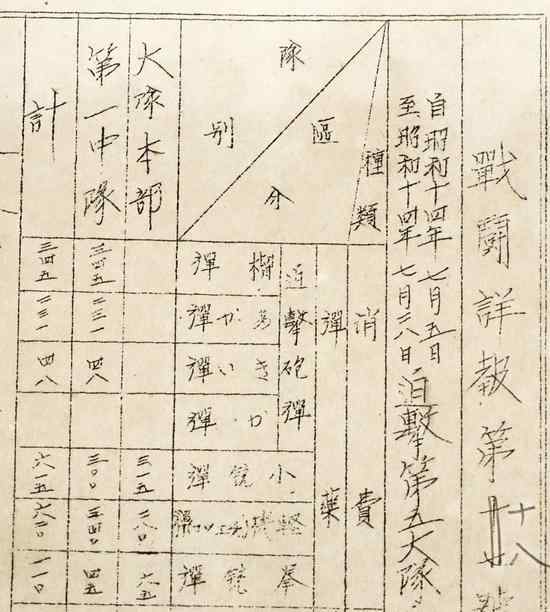 戰鬪詳報第十八號
自昭和十四年七月五日
至昭和十四年七月二八日 迫擊第五大隊
種類
區分
隊別
消費
彈藥
迫擊砲彈
榴彈
あか彈
きい彈
か彈
小銃彈
拳銃彈
大隊本部
三一五
二八〇
六五
第一中隊
三四五
二三一
四八
三〇〇
三四〇
四五
計
三四五
二三一
四八
六一五
六二〇
一一〇